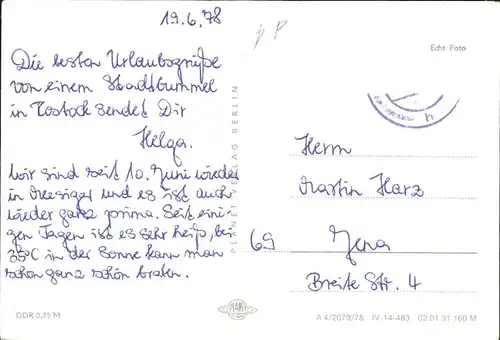 19.6.78
Die besten Urlaubsgrüße
von einem Stadtbummel
in Rostock sendet Dir
Helga.
Wir sind seit 10. Juni wieder
in und es ist auch
wieder ganz prima. Seit eini-
gen Tagen ist es sehr heiß, bei
35°C in der Sonne kann man
schon ganz schön braten.
DDR 0,25 M
PLANET-VERLAG BERLIN
PLANET
Echt Foto
h
Herrn
Martin Harz
69 Jena
Breite Str. 4
A 4/2079/78 IV-14-483 02 01 31 160 M